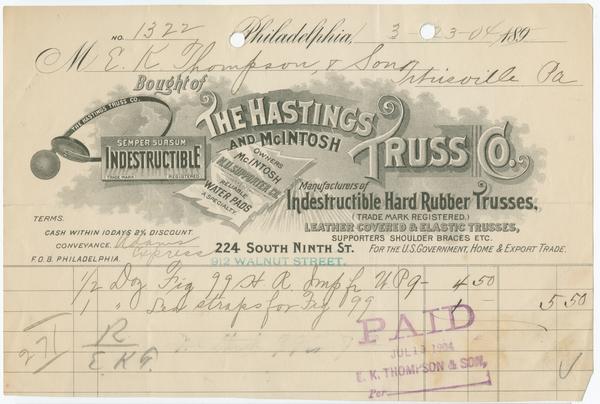 NO. 1322 Philadelphia, 3-23-04 189
M E. K. Thompson, & Son
Titusville Pa
Bought of
THE HASTINGS TRUSS CO.
SEMPER SURSUM
INDESTRUCTIBLE
TRADE MARK REGISTERED
THE HASTINGS
AND McINTOSH
TRUSS CO.
OWNERS
McINTOSH
N.H. SUPPORTER CO.
RELIABLE
WATER PADS
A SPECIALTY.
Manufacturers of
Indestructible Hard Rubber Trusses,
(TRADE MARK REGISTERED.)
LEATHER COVERED & ELASTIC TRUSSES,
SUPPORTERS SHOULDER BRACES ETC.
FOR THE U.S. GOVERNMENT, HOME & EXPORT TRADE.
TERMS.
CASH WITHIN 10 DAYS 2% DISCOUNT.
CONVEYANCE. Adams Express
F.O.B. PHILADELPHIA.
224 SOUTH NINTH ST.
912 WALNUT STREET.
1/2 Doz Fig 99 H R 9- 4 50
1 " straps for Fig 99 1 5 50
27/ R
E.K.T.
PAID
JUL 13 1904
E. K. THOMPSON & SON,
Per